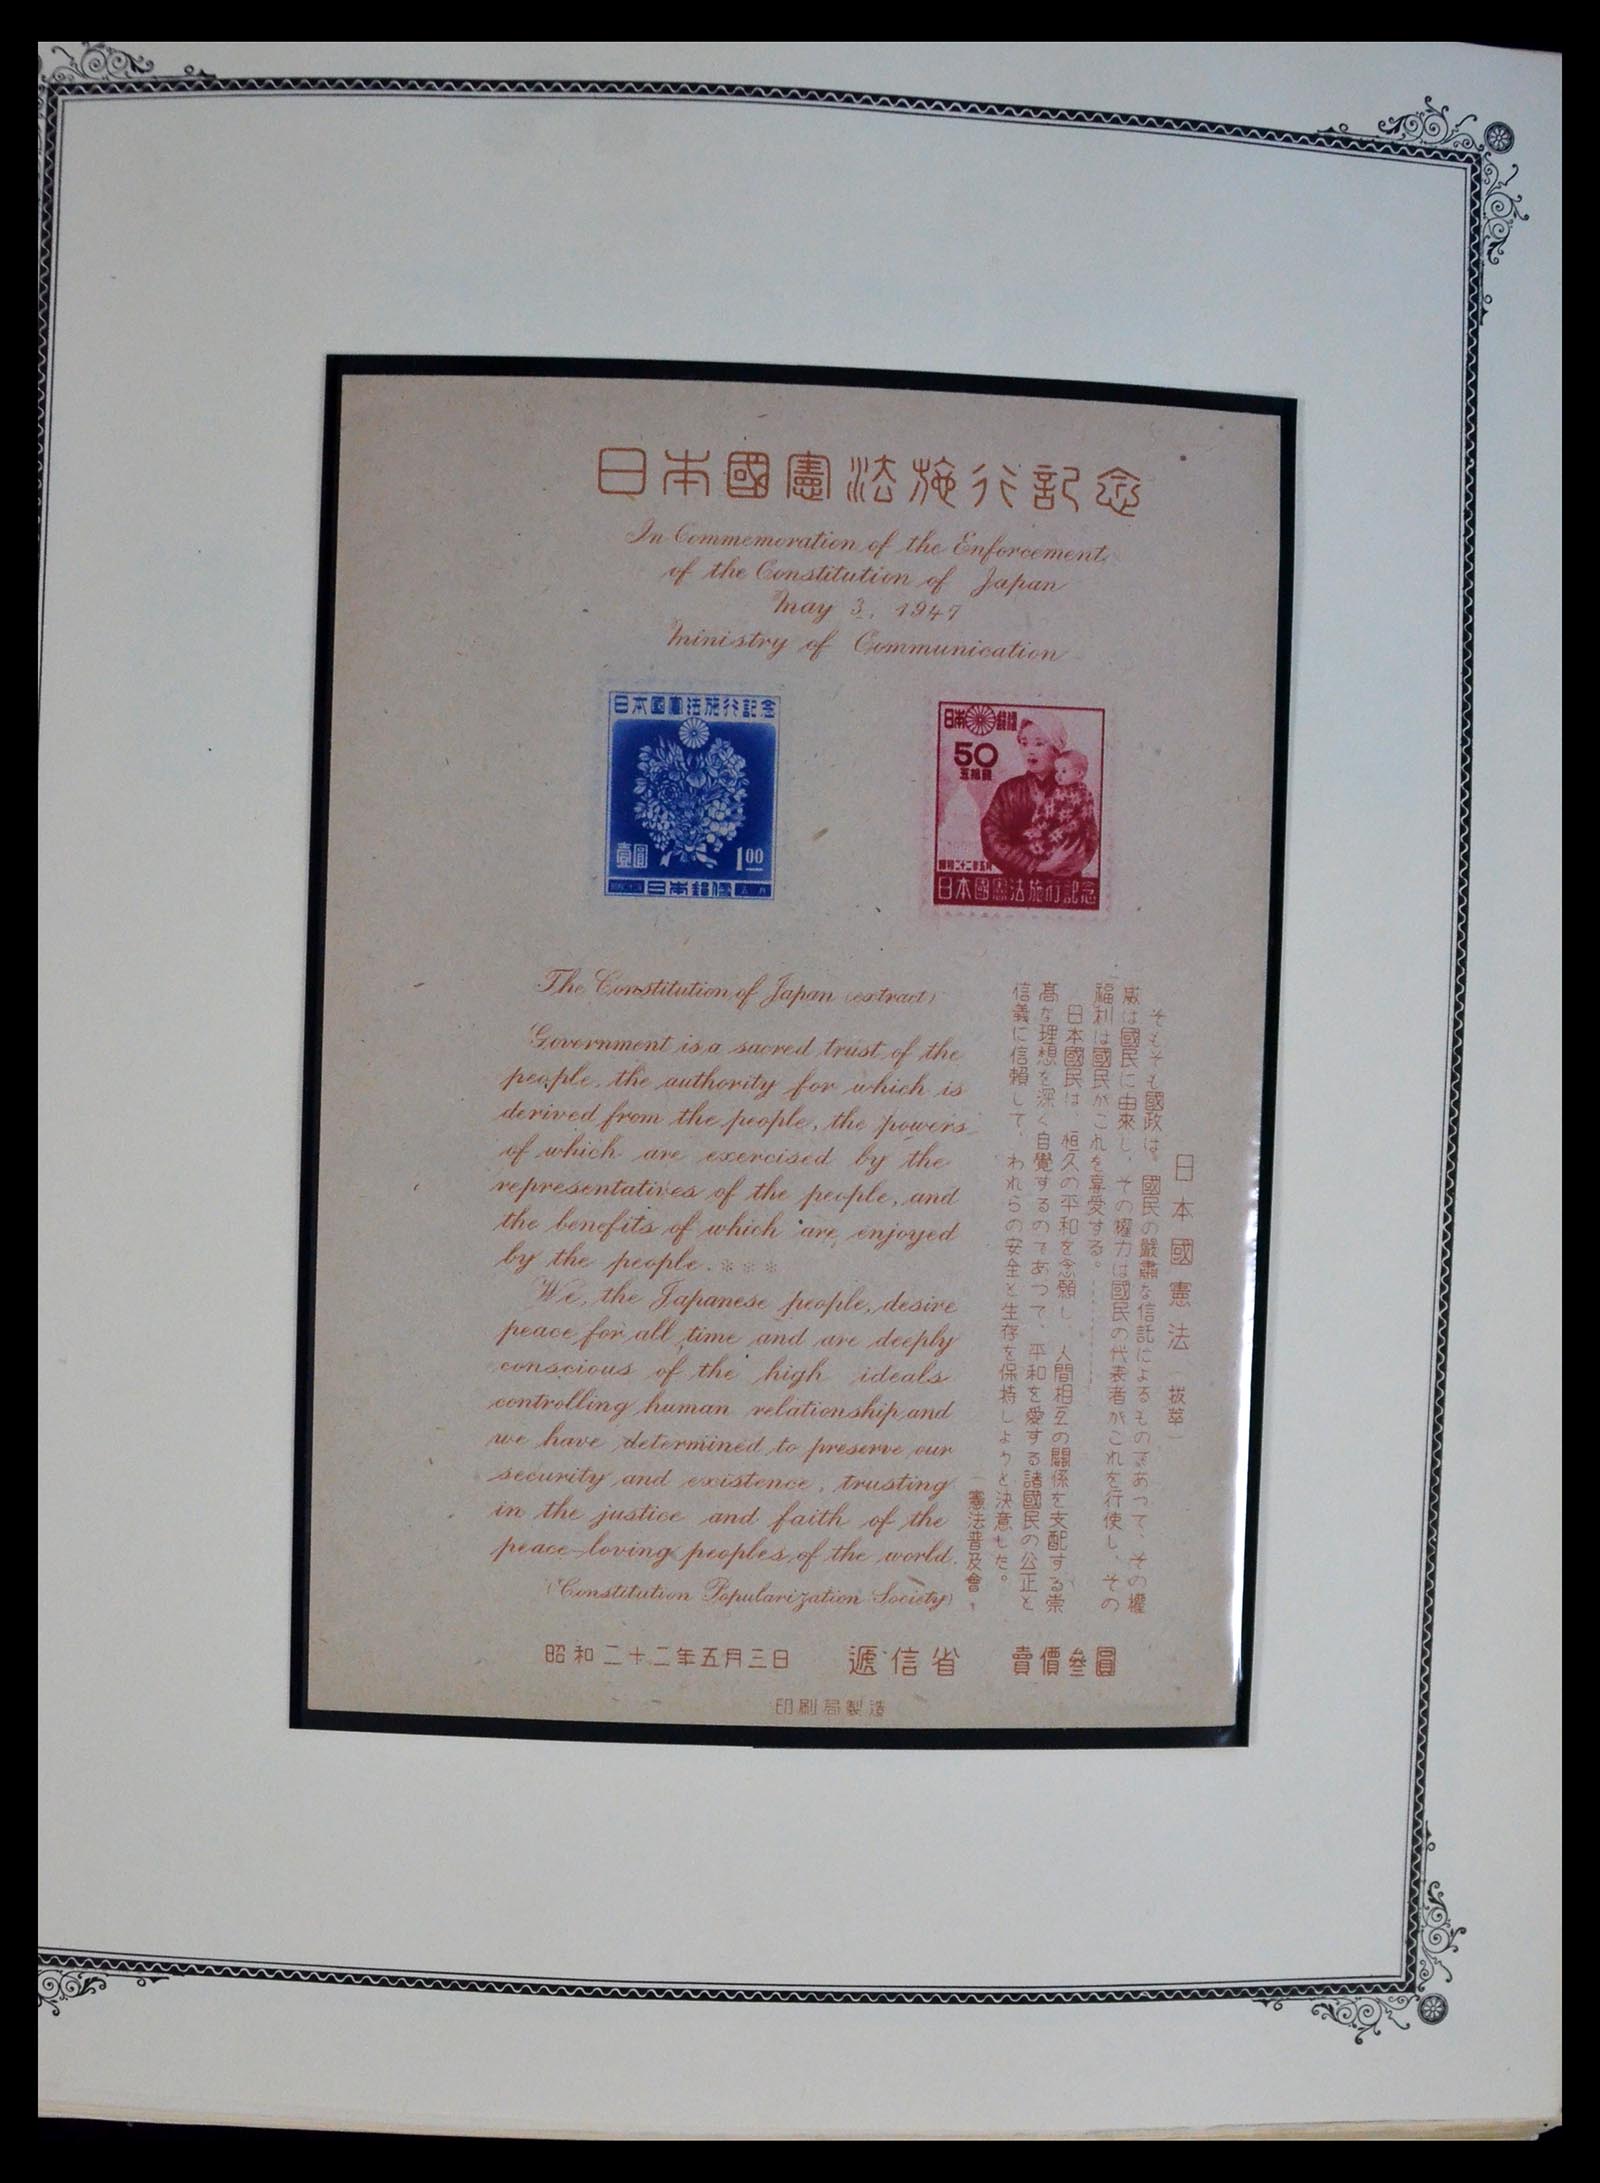 日本國憲法施行記念
In Commemoration of the Enforcement
of the Constitution of Japan
May 3, 1947
Ministry of Communication
日本國憲法施行記念
壹圓
1.00
日本郵便
日本郵便
50
五拾錢
昭和二十二年五月
日本國憲法施行記念
The Constitution of Japan (extract)
Government is a sacred trust of the
people, the authority for which is
derived from the people, the powers
of which are exercised by the
representatives of the people, and
the benefits of which are enjoyed
by the people. ***
We, the Japanese people, desire
peace for all time and are deeply
conscious of the high ideals
controlling human relationship, and
we have determined to preserve our
security and existence, trusting
in the justice and faith of the
peace-loving peoples of the world.
(Constitution Popularization Society)
日本國憲法（拔萃）
そもそも國政は、國民の嚴肅な信託によるものであつて、その權
威は國民に由來し、その權力は國民の代表者がこれを行使し、その
福利は國民がこれを享受する。……
日本國民は、恒久の平和を念願し、人間相互の關係を支配する崇
高な理想を深く自覺するのであつて、平和を愛する諸國民の公正と
信義に信賴して、われらの安全と生存を保持しようと決意した。
（憲法普及會）
昭和二十二年五月三日 遞信省 賣價參圓
印刷局製造